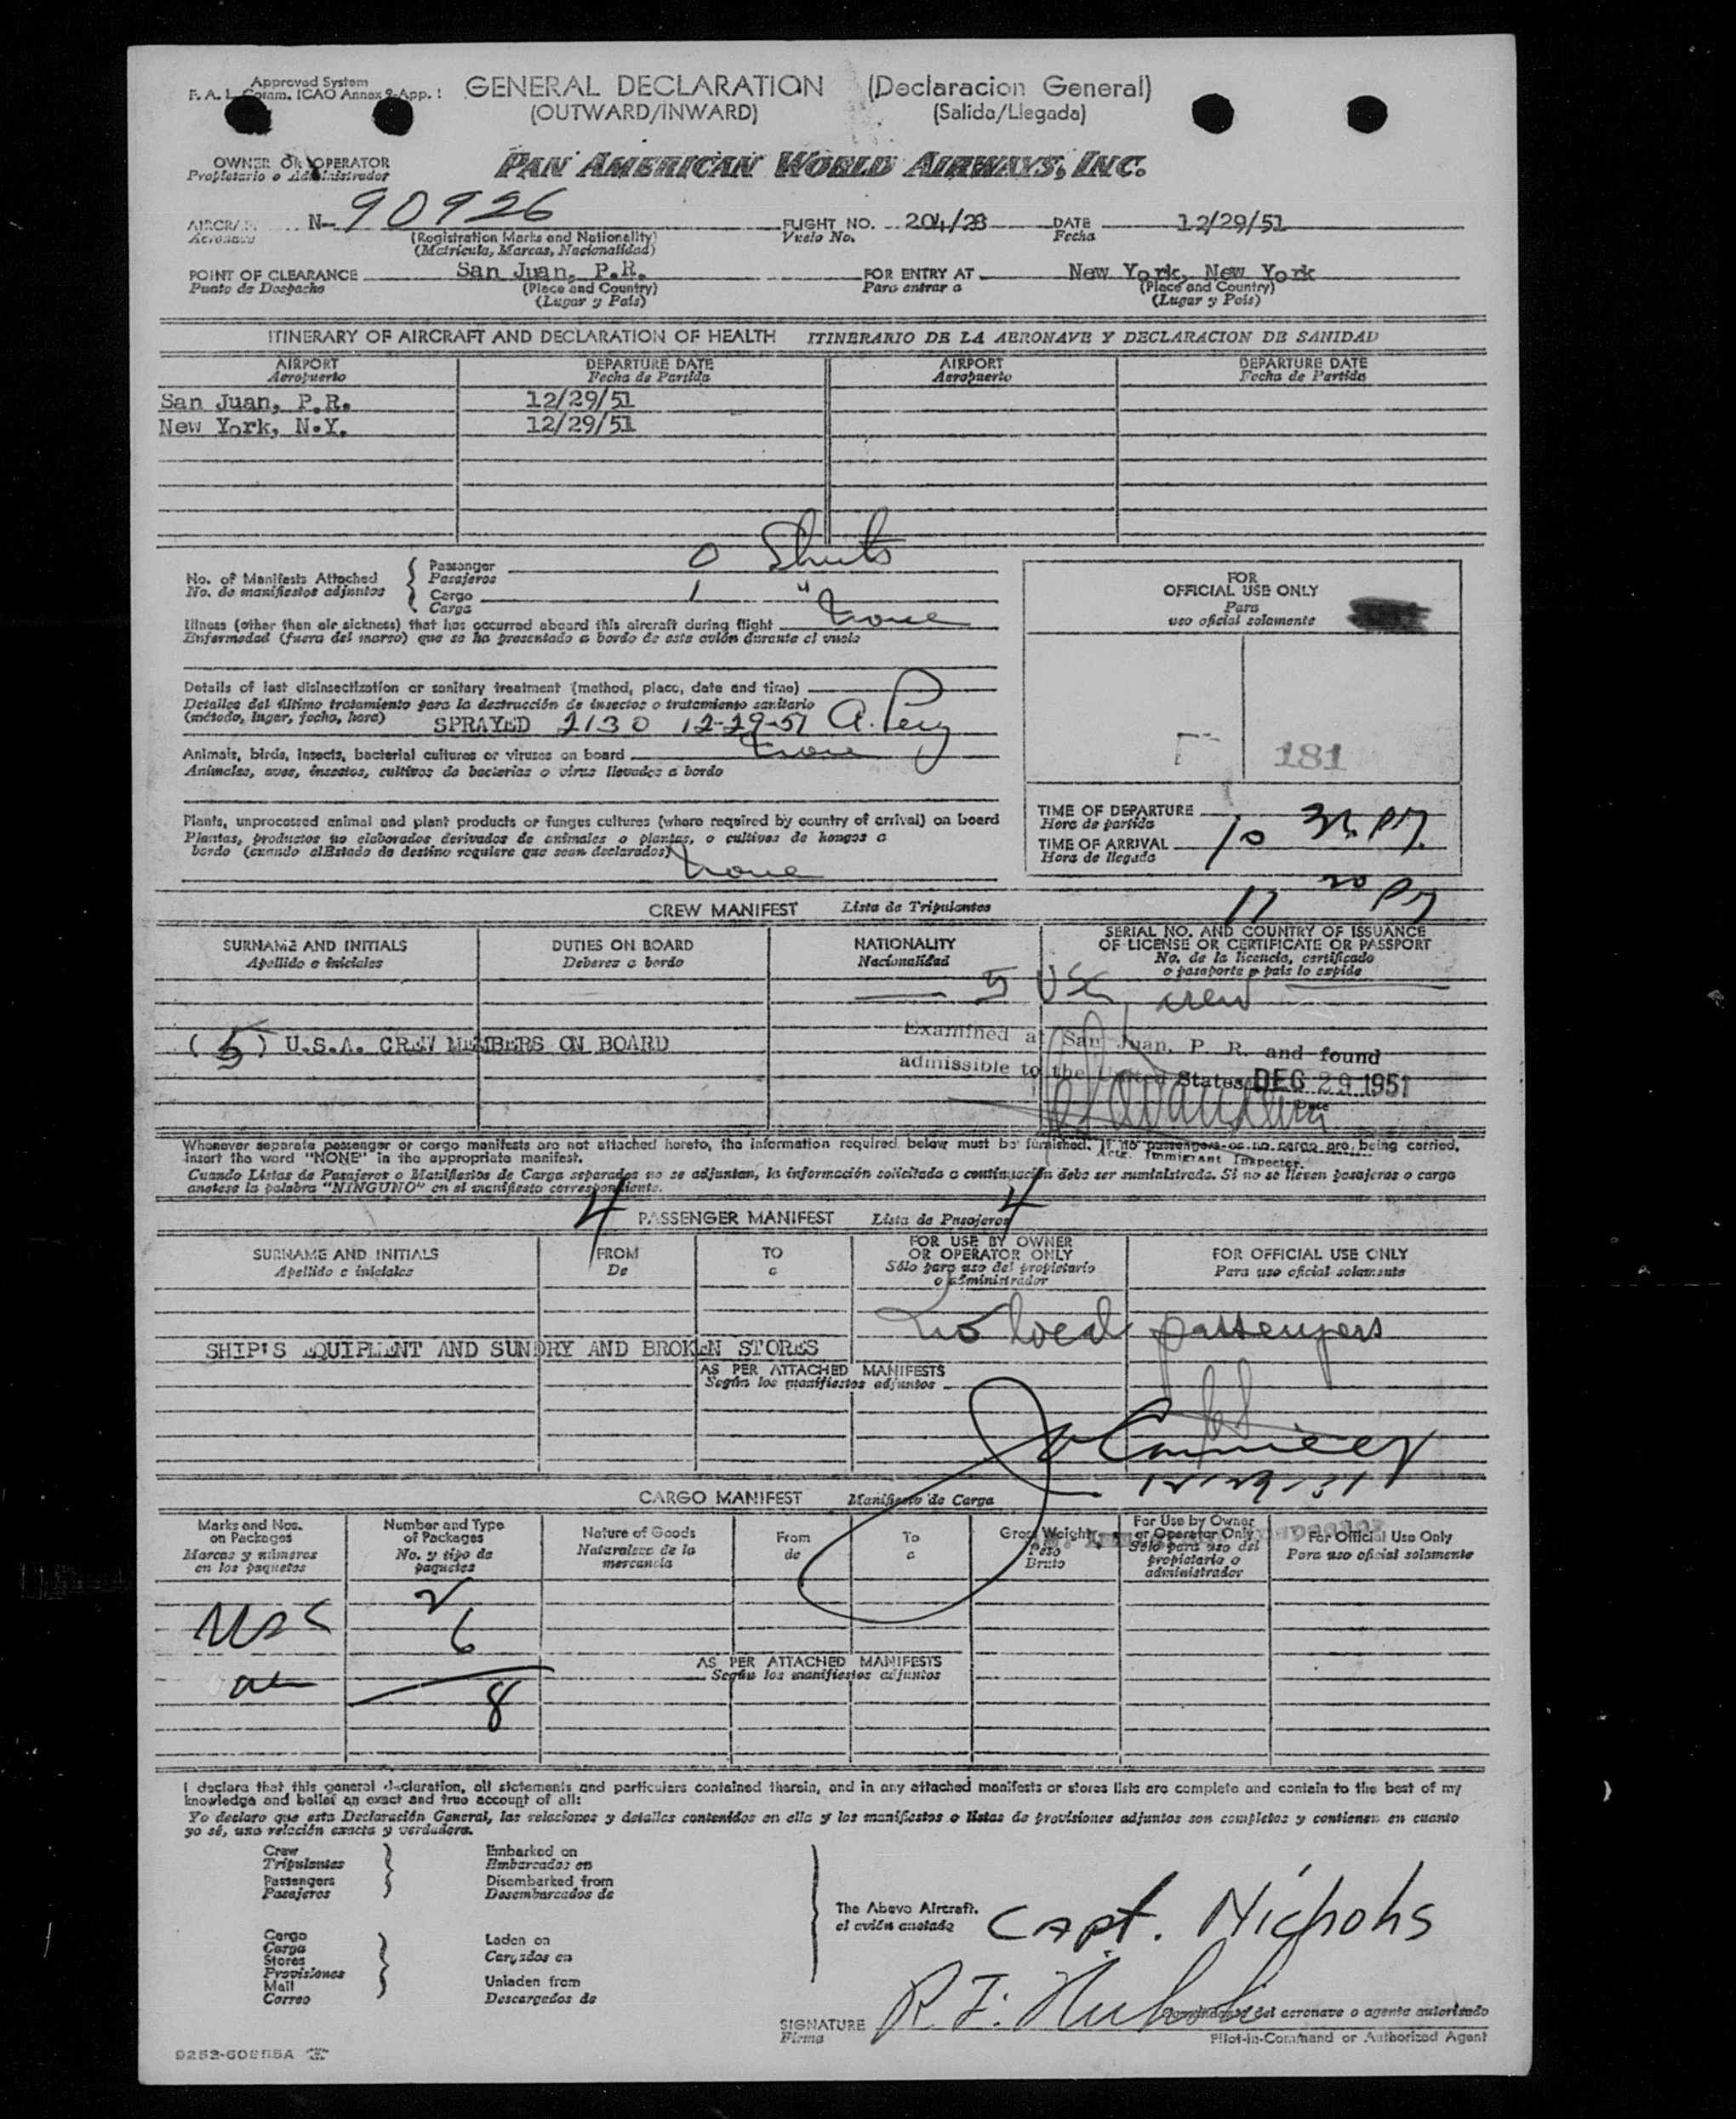 Approved System
F. A. L. Comm. ICAO Annex 9-App. 1
GENERAL DECLARATION (Declaracion General)
(OUTWARD/INWARD) (Salida/Llegada)
OWNER OR OPERATOR
Propietario o Administrador
PAN AMERICAN WORLD AIRWAYS, INC.
N-90926 FLIGHT NO. 204/28 DATE 12/29/51
Aeronave (Registration Marks and Nationality) Vuelo No. Fecha
(Matricula, Marcas, Nacionalidad)
POINT OF CLEARANCE San Juan, P.R. FOR ENTRY AT New York, New York
Punto de Despacho (Place and Country) Para entrar a (Place and Country)
(Lugar y País) (Lugar y País)
ITINERARY OF AIRCRAFT AND DECLARATION OF HEALTH ITINERARIO DE LA AERONAVE Y DECLARACION DE SANIDAD
AIRPORT DEPARTURE DATE AIRPORT DEPARTURE DATE
Aeropuerto Fecha de Partida Aeropuerto Fecha de Partida
San Juan, P.R. 12/29/51
New York, N.Y. 12/29/51
No. of Manifests Attached
No. de manifiestos adjuntos
Passenger 0 Sheets
Pasajeros
Cargo 1 "
Carga
Illness (other than air sickness) that has occurred aboard this aircraft during flight None
Enfermedad (fuera del mareo) que se ha presentado a bordo de este avión durante el vuelo
Details of last disinsectization or sanitary treatment (method, place, date and time)
Detalles del último tratamiento para la destrucción de insectos o tratamiento sanitario
(método, lugar, fecha, hora) SPRAYED 2130 12-29-51 A. Perez
Animals, birds, insects, bacterial cultures or viruses on board None
Animales, aves, insectos, cultivos de bacterias o virus llevados a bordo
Plants, unprocessed animal and plant products or fungus cultures (where required by country of arrival) on board
Plantas, productos no elaborados derivados de animales o plantas, o cultivos de hongos a
bordo (cuando elEstado de destino requiere que sean declarados) None
FOR
OFFICIAL USE ONLY
Para
uso oficial solamente
181
TIME OF DEPARTURE
Hora de partida
TIME OF ARRIVAL 10 35 PM
Hora de llegada
CREW MANIFEST Lista de Tripulantes
SURNAME AND INITIALS DUTIES ON BOARD NATIONALITY SERIAL NO. AND COUNTRY OF ISSUANCE
OF LICENSE OR CERTIFICATE OR PASSPORT
Apellido e iniciales Deberes a bordo Nacionalidad No. de la licencia, certificado
o pasaporte y país lo expide
5 USC crew
(5) U.S.A. CREW MEMBERS ON BOARD
Examined at San Juan, P. R. and found
admissible to the United States DEC 29 1951
Date
Actg. Immigrant Inspector
Whenever separate passenger or cargo manifests are not attached hereto, the information required below must be furnished. If no passengers or no cargo are being carried,
insert the word "NONE" in the appropriate manifest.
Cuando Listas de Pasajeros o Manifiestos de Carga separados no se adjuntan, la información solicitada a continuación debe ser suministrada. Si no se lleven pasajeros o carga
anotese la palabra "NINGUNO" en el manifiesto correspondiente.
4 PASSENGER MANIFEST Lista de Pasajeros 4
SURNAME AND INITIALS FROM TO FOR USE BY OWNER
OR OPERATOR ONLY FOR OFFICIAL USE ONLY
Apellido e iniciales De a Sólo para uso del propietario
o administrador Para uso oficial solamente
No local passengers
SHIP'S EQUIPMENT AND SUNDRY AND BROKEN STORES
AS PER ATTACHED MANIFESTS
Según los manifiestos adjuntos
12-29-51
CARGO MANIFEST Manifiesto de Carga
Marks and Nos.
on Packages
Marcas y números
en los paquetes
Number and Type
of Packages
No. y tipo de
paquetes
Nature of Goods
Naturaleza de la
mercancia
From
de
To
a
Gross Weight
Peso
Bruto
For Use by Owner
or Operator Only
Sólo para uso del
propietario o
administrador
For Official Use Only
Para uso oficial solamente
2
6
8
AS PER ATTACHED MANIFESTS
Según los manifiestos adjuntos
I declare that this general declaration, all statements and particulars contained therein, and in any attached manifests or stores lists are complete and contain to the best of my
knowledge and belief an exact and true account of all:
Yo declaro que esta Declaración General, las relaciones y detalles contenidos en ella y los manifiestos o listas de provisiones adjuntos son completos y contienen en cuanto
yo sé, una relación exacta y verdadera.
Crew Embarked on
Tripulantes Embarcados en
Passengers Disembarked from
Pasajeros Desembarcados de
Cargo Laden on
Carga Cargados en
Stores
Provisiones
Mail Unladen from
Correo Descargados de
The Above Aircraft.
el avión anotado
Capt. Nichols
SIGNATURE R. F. Nichols del aeronave o agente autorizado
Firma Pilot-in-Command or Authorized Agent